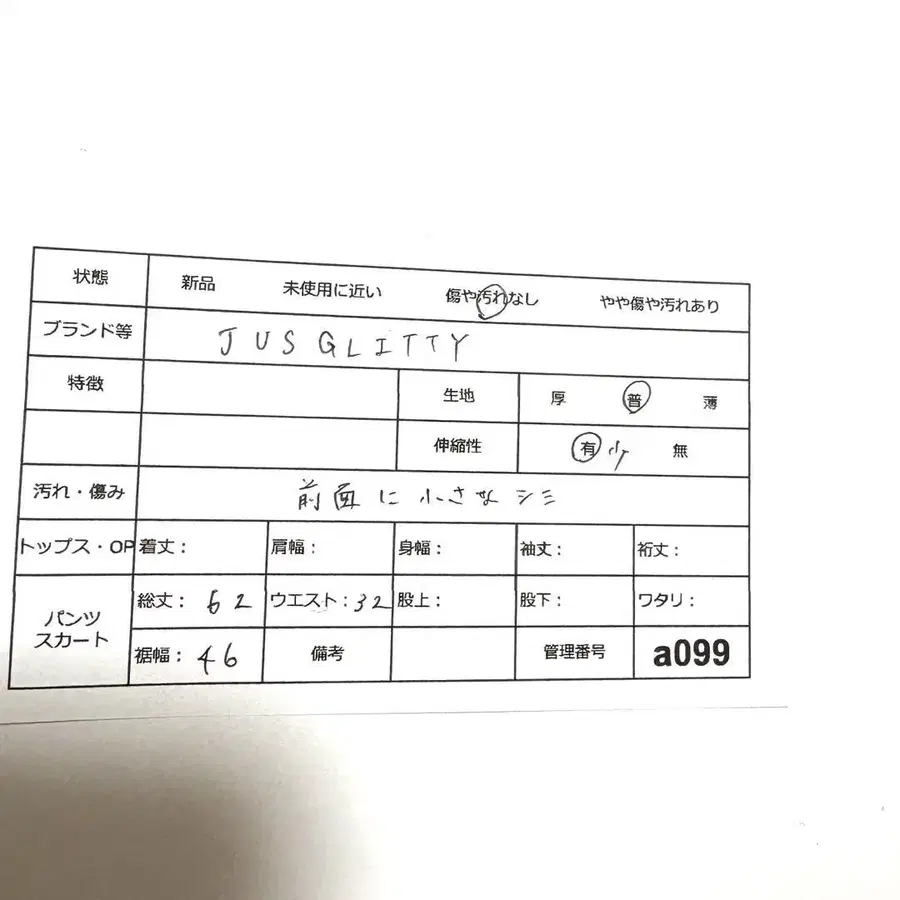 状態 新品 未使用に近い 傷や汚れなし やや傷や汚れあり
ブランド等 JUSGLITTY
特徴 生地 厚 普 薄
伸縮性 有 少 無
汚れ・傷み 前面に小さなシミ
トップス・OP 着丈： 肩幅： 身幅： 袖丈： 裄丈：
パンツ スカート 総丈：62 ウエスト：32 股上： 股下： ワタリ：
裾幅：46 備考 管理番号 a099